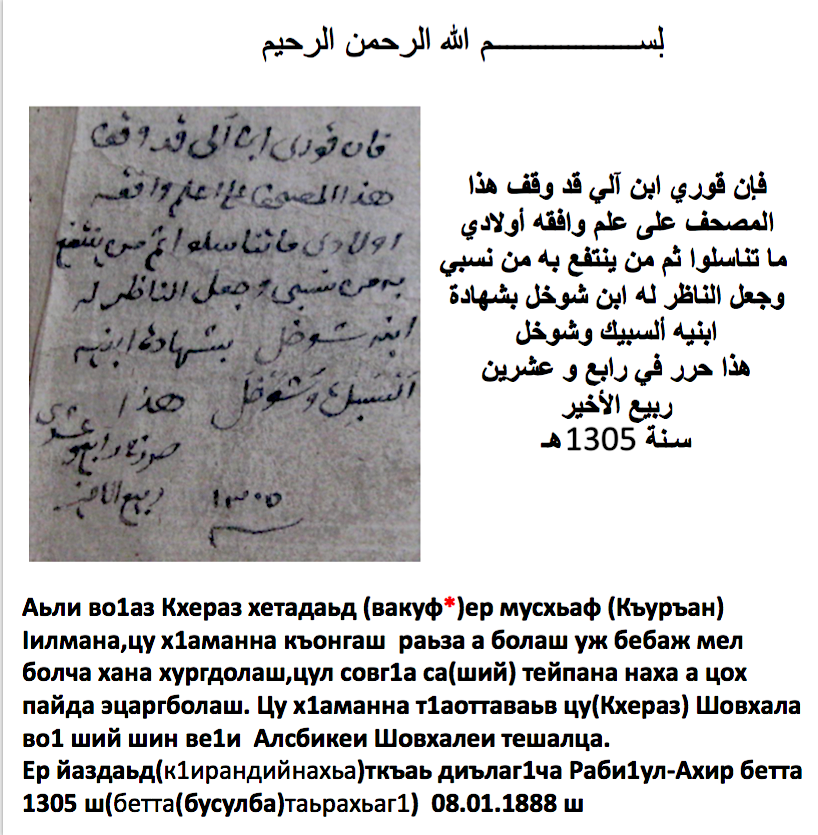 بســــــــم الله الرحمن الرحيم
فان قورى ابن آلى قد وقف
هذا المصحف على اعلم وافقه
اولادى ما تناسلوا ثم من ينتفع
به من نسبى وجعل الناظر له
ابنه شوخل بشهادة ابنيه
وَشَوْخَلَ هذا
رابع و عشرى
ربيع الاخير ١٣٠٥
فإن قوري ابن آلي قد وقف هذا
المصحف على علم وافقه أولادي
ما تناسلوا ثم من ينتفع به من نسبي
وجعل الناظر له ابن شوخل بشهادة
ابنيه ألسبيك وشوخل
هذا حرر في رابع و عشرين
ربيع الأخير
سنة 1305هـ
Аьли во1аз Кхераз хетадаьд (вакуф*)ер мусхьаф (Къуръан)
Iилмана,цу х1аманна къонгаш раьза а болаш уж бебаж мел
болча хана хургдолаш,цул совг1а са(ший) тейпана наха а цох
пайда эцаргболаш. Цу х1аманна т1аоттаваьв цу(Кхераз) Шовхала
во1 ший шин ве1и Алсбикеи Шовхалеи тешалца.
Ер йаздаьд(к1ирандийнахьа)ткъаь диълаг1ча Раби1ул-Ахир бетта
1305 ш(бетта(бусулба)таьрахьаг1) 08.01.1888 ш